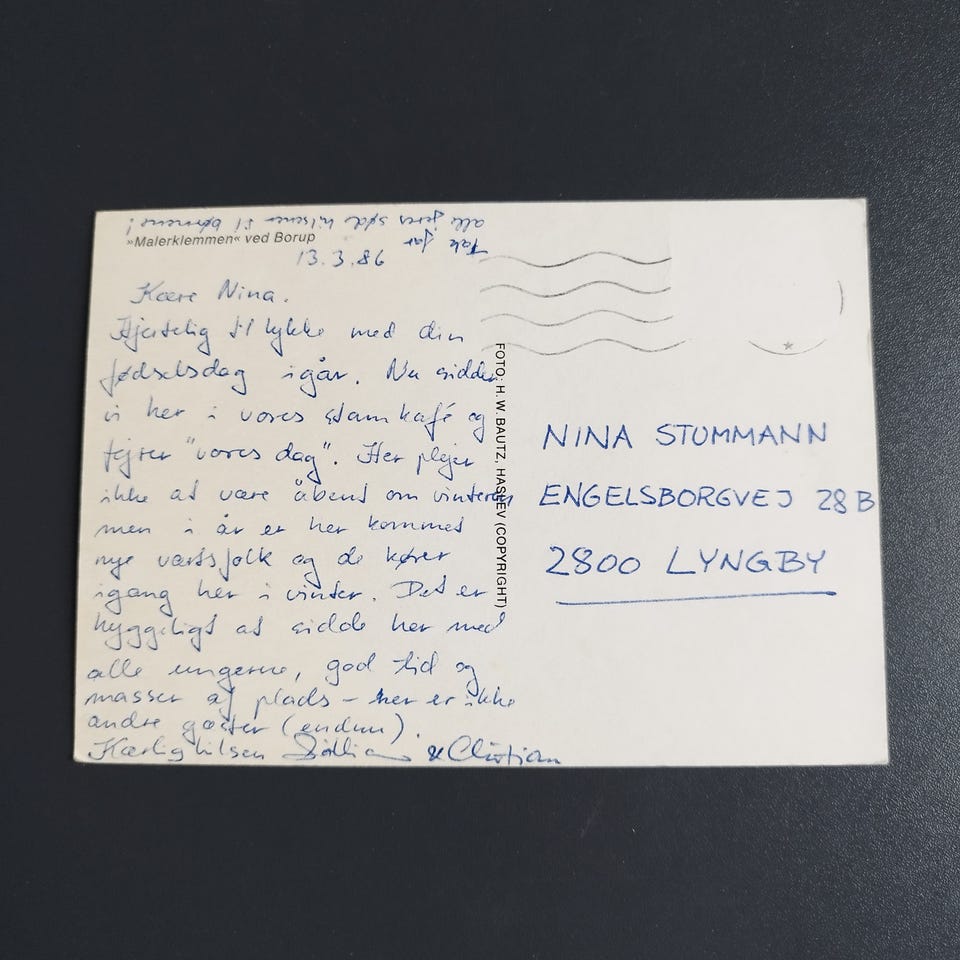 Tak for
alle jeres søde hilsener til børnene!
»Malerklemmen« ved Borup
13.3.86
Kære Nina.
Hjertelig til lykke med din
fødselsdag igår. Nu sidder
vi her i vores stamkafé og
fejrer "vores dag". Her plejer
ikke at være åbent om vinteren
men i år er her kommet
nye værtsfolk og de kører
igang her i vinter. Det er
hyggeligt at sidde her med
alle ungerne, god tid og
masser af plads - her er ikke
andre gæster (endnu).
Kærlig hilsen & Christian
FOTO: H. W. BAUTZ, HASLEV (COPYRIGHT)
NINA STUMMANN
ENGELSBORGVEJ 28 B
2800 LYNGBY